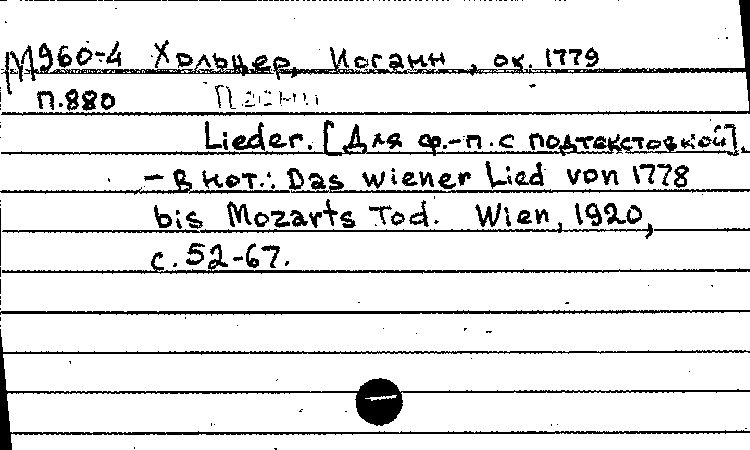 М960-4 Хольцер, Иоганн, ок. 1779
П.880 Песни
Lieder. [Для ф.-п. с подтекстовкой].
— В нот.: Das wiener Lied von 1778
bis Mozarts Tod. Wien, 1920,
с. 52-67.